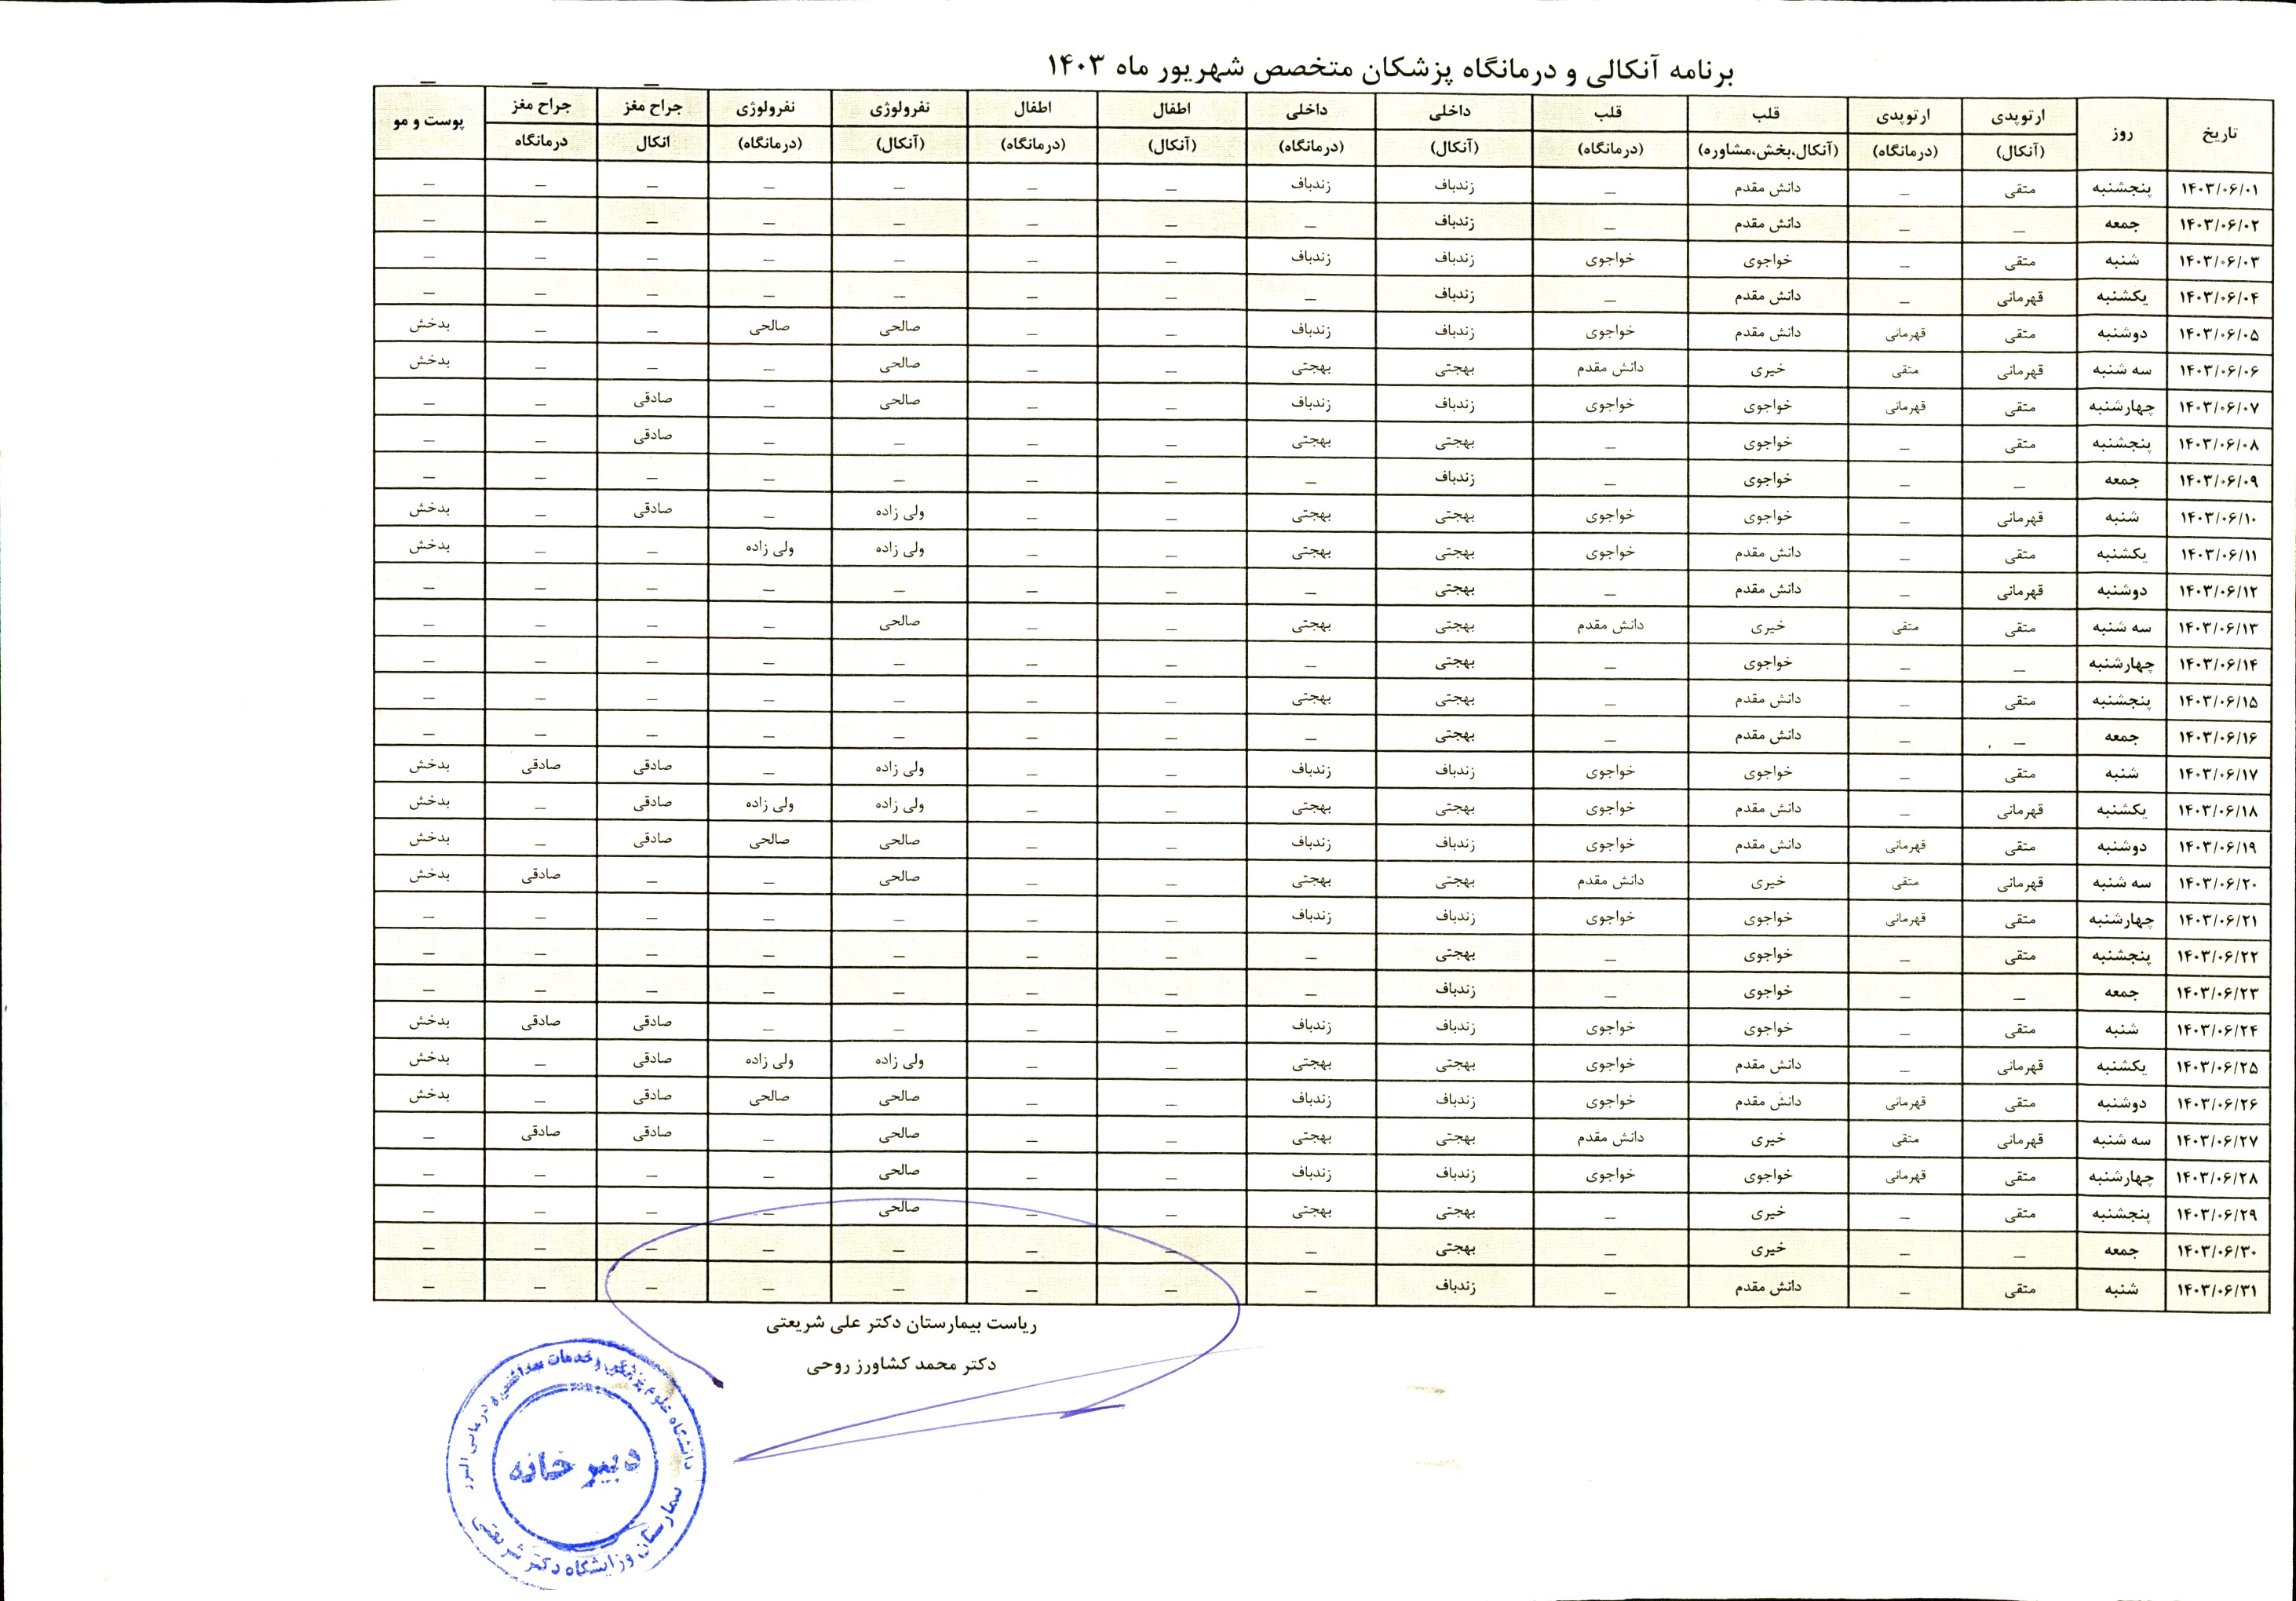 برنامه آنکالی و درمانگاه پزشکان متخصص شهریور ماه ۱۴۰۳
تاریخ روز ارتوپدی ارتوپدی قلب قلب داخلی داخلی اطفال اطفال نفرولوژی نفرولوژی جراح مغز جراح مغز پوست و مو
(آنکال) (درمانگاه) (آنکال،بخش،مشاوره) (درمانگاه) (آنکال) (درمانگاه) (آنکال) (درمانگاه) (آنکال) (درمانگاه) انکال درمانگاه
۱۴۰۳/۰۶/۰۱ پنجشنبه متقی _ دانش مقدم _ زندباف زندباف _ _ _ _ _ _ _
۱۴۰۳/۰۶/۰۲ جمعه _ _ دانش مقدم _ زندباف _ _ _ _ _ _ _ _
۱۴۰۳/۰۶/۰۳ شنبه متقی _ خواجوی خواجوی زندباف زندباف _ _ _ _ _ _ _
۱۴۰۳/۰۶/۰۴ یکشنبه قهرمانی _ دانش مقدم _ زندباف _ _ _ _ _ _ _ _
۱۴۰۳/۰۶/۰۵ دوشنبه متقی قهرمانی دانش مقدم خواجوی زندباف زندباف _ _ صالحی صالحی _ _ بدخش
۱۴۰۳/۰۶/۰۶ سه شنبه قهرمانی متقی خیری دانش مقدم بهجتی بهجتی _ _ صالحی _ _ _ بدخش
۱۴۰۳/۰۶/۰۷ چهارشنبه متقی قهرمانی خواجوی خواجوی زندباف زندباف _ _ صالحی _ صادقی _ _
۱۴۰۳/۰۶/۰۸ پنجشنبه متقی _ خواجوی _ بهجتی بهجتی _ _ _ _ صادقی _ _
۱۴۰۳/۰۶/۰۹ جمعه _ _ خواجوی _ زندباف _ _ _ _ _ _ _ _
۱۴۰۳/۰۶/۱۰ شنبه قهرمانی _ خواجوی خواجوی بهجتی بهجتی _ _ ولی زاده _ صادقی _ بدخش
۱۴۰۳/۰۶/۱۱ یکشنبه متقی _ دانش مقدم خواجوی بهجتی بهجتی _ _ ولی زاده ولی زاده _ _ بدخش
۱۴۰۳/۰۶/۱۲ دوشنبه قهرمانی _ دانش مقدم _ بهجتی _ _ _ _ _ _ _ _
۱۴۰۳/۰۶/۱۳ سه شنبه متقی متقی خیری دانش مقدم بهجتی بهجتی _ _ صالحی _ _ _ _
۱۴۰۳/۰۶/۱۴ چهارشنبه _ _ خواجوی _ بهجتی _ _ _ _ _ _ _ _
۱۴۰۳/۰۶/۱۵ پنجشنبه متقی _ دانش مقدم _ بهجتی بهجتی _ _ _ _ _ _ _
۱۴۰۳/۰۶/۱۶ جمعه _ _ دانش مقدم _ بهجتی _ _ _ _ _ _ _ _
۱۴۰۳/۰۶/۱۷ شنبه متقی _ خواجوی خواجوی زندباف زندباف _ _ ولی زاده _ صادقی صادقی بدخش
۱۴۰۳/۰۶/۱۸ یکشنبه قهرمانی _ دانش مقدم خواجوی بهجتی بهجتی _ _ ولی زاده ولی زاده صادقی _ بدخش
۱۴۰۳/۰۶/۱۹ دوشنبه متقی قهرمانی دانش مقدم خواجوی زندباف زندباف _ _ صالحی صالحی صادقی _ بدخش
۱۴۰۳/۰۶/۲۰ سه شنبه قهرمانی متقی خیری دانش مقدم بهجتی بهجتی _ _ صالحی _ _ صادقی بدخش
۱۴۰۳/۰۶/۲۱ چهارشنبه متقی قهرمانی خواجوی خواجوی زندباف زندباف _ _ _ _ _ _ _
۱۴۰۳/۰۶/۲۲ پنجشنبه متقی _ خواجوی _ بهجتی _ _ _ _ _ _ _ _
۱۴۰۳/۰۶/۲۳ جمعه _ _ خواجوی _ زندباف _ _ _ _ _ _ _ _
۱۴۰۳/۰۶/۲۴ شنبه متقی _ خواجوی خواجوی زندباف زندباف _ _ _ _ صادقی صادقی بدخش
۱۴۰۳/۰۶/۲۵ یکشنبه قهرمانی _ دانش مقدم خواجوی بهجتی بهجتی _ _ ولی زاده ولی زاده صادقی _ بدخش
۱۴۰۳/۰۶/۲۶ دوشنبه متقی قهرمانی دانش مقدم خواجوی زندباف زندباف _ _ صالحی صالحی صادقی _ بدخش
۱۴۰۳/۰۶/۲۷ سه شنبه قهرمانی متقی خیری دانش مقدم بهجتی بهجتی _ _ صالحی _ صادقی صادقی _
۱۴۰۳/۰۶/۲۸ چهارشنبه متقی قهرمانی خواجوی خواجوی زندباف زندباف _ _ صالحی _ _ _ _
۱۴۰۳/۰۶/۲۹ پنجشنبه متقی _ خیری _ بهجتی بهجتی _ _ صالحی _ _ _ _
۱۴۰۳/۰۶/۳۰ جمعه _ _ خیری _ بهجتی _ _ _ _ _ _ _ _
۱۴۰۳/۰۶/۳۱ شنبه متقی _ دانش مقدم _ زندباف _ _ _ _ _ _ _ _
ریاست بیمارستان دکتر علی شریعتی
دکتر محمد کشاورز روحی
دانشگاه علوم پزشکی و خدمات بهداشتی و درمانی البرز
دبیر خانه
بیمارستان و زایشگاه دکتر شریعتی